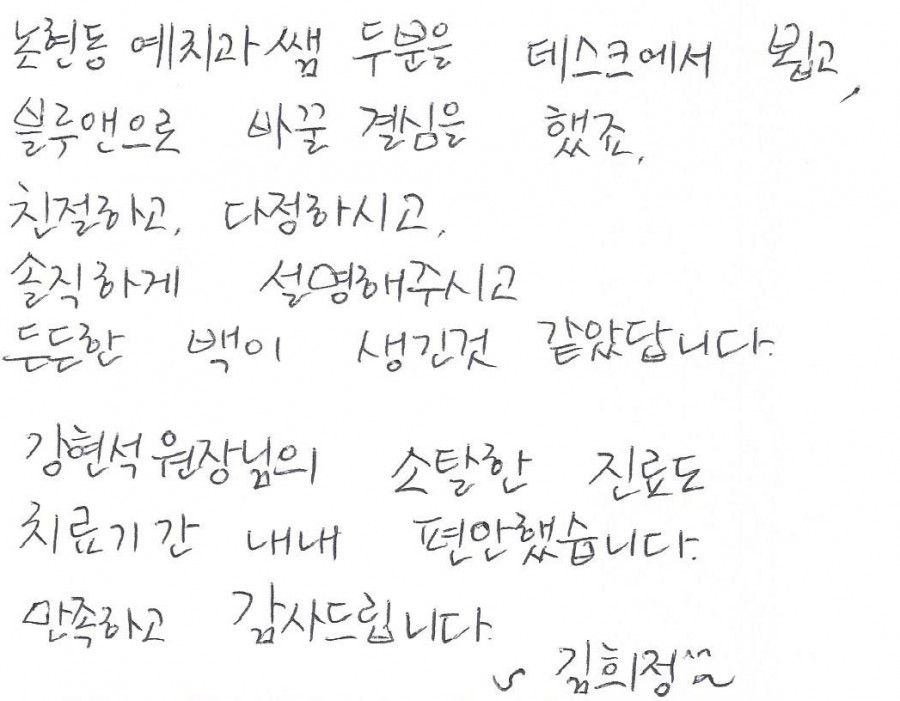 논현동 예치과쌤 두분을 테스크에서 뵙고,
블루앤으로 바꿀 결심을 했죠.
친절하고, 다정하시고,
솔직하게 설명해주시고
든든한 백이 생긴것 같았답니다.
강현석원장님의 소탈한 진료도
치료기간 내내 편안했습니다.
만족하고 감사드립니다.
김희정